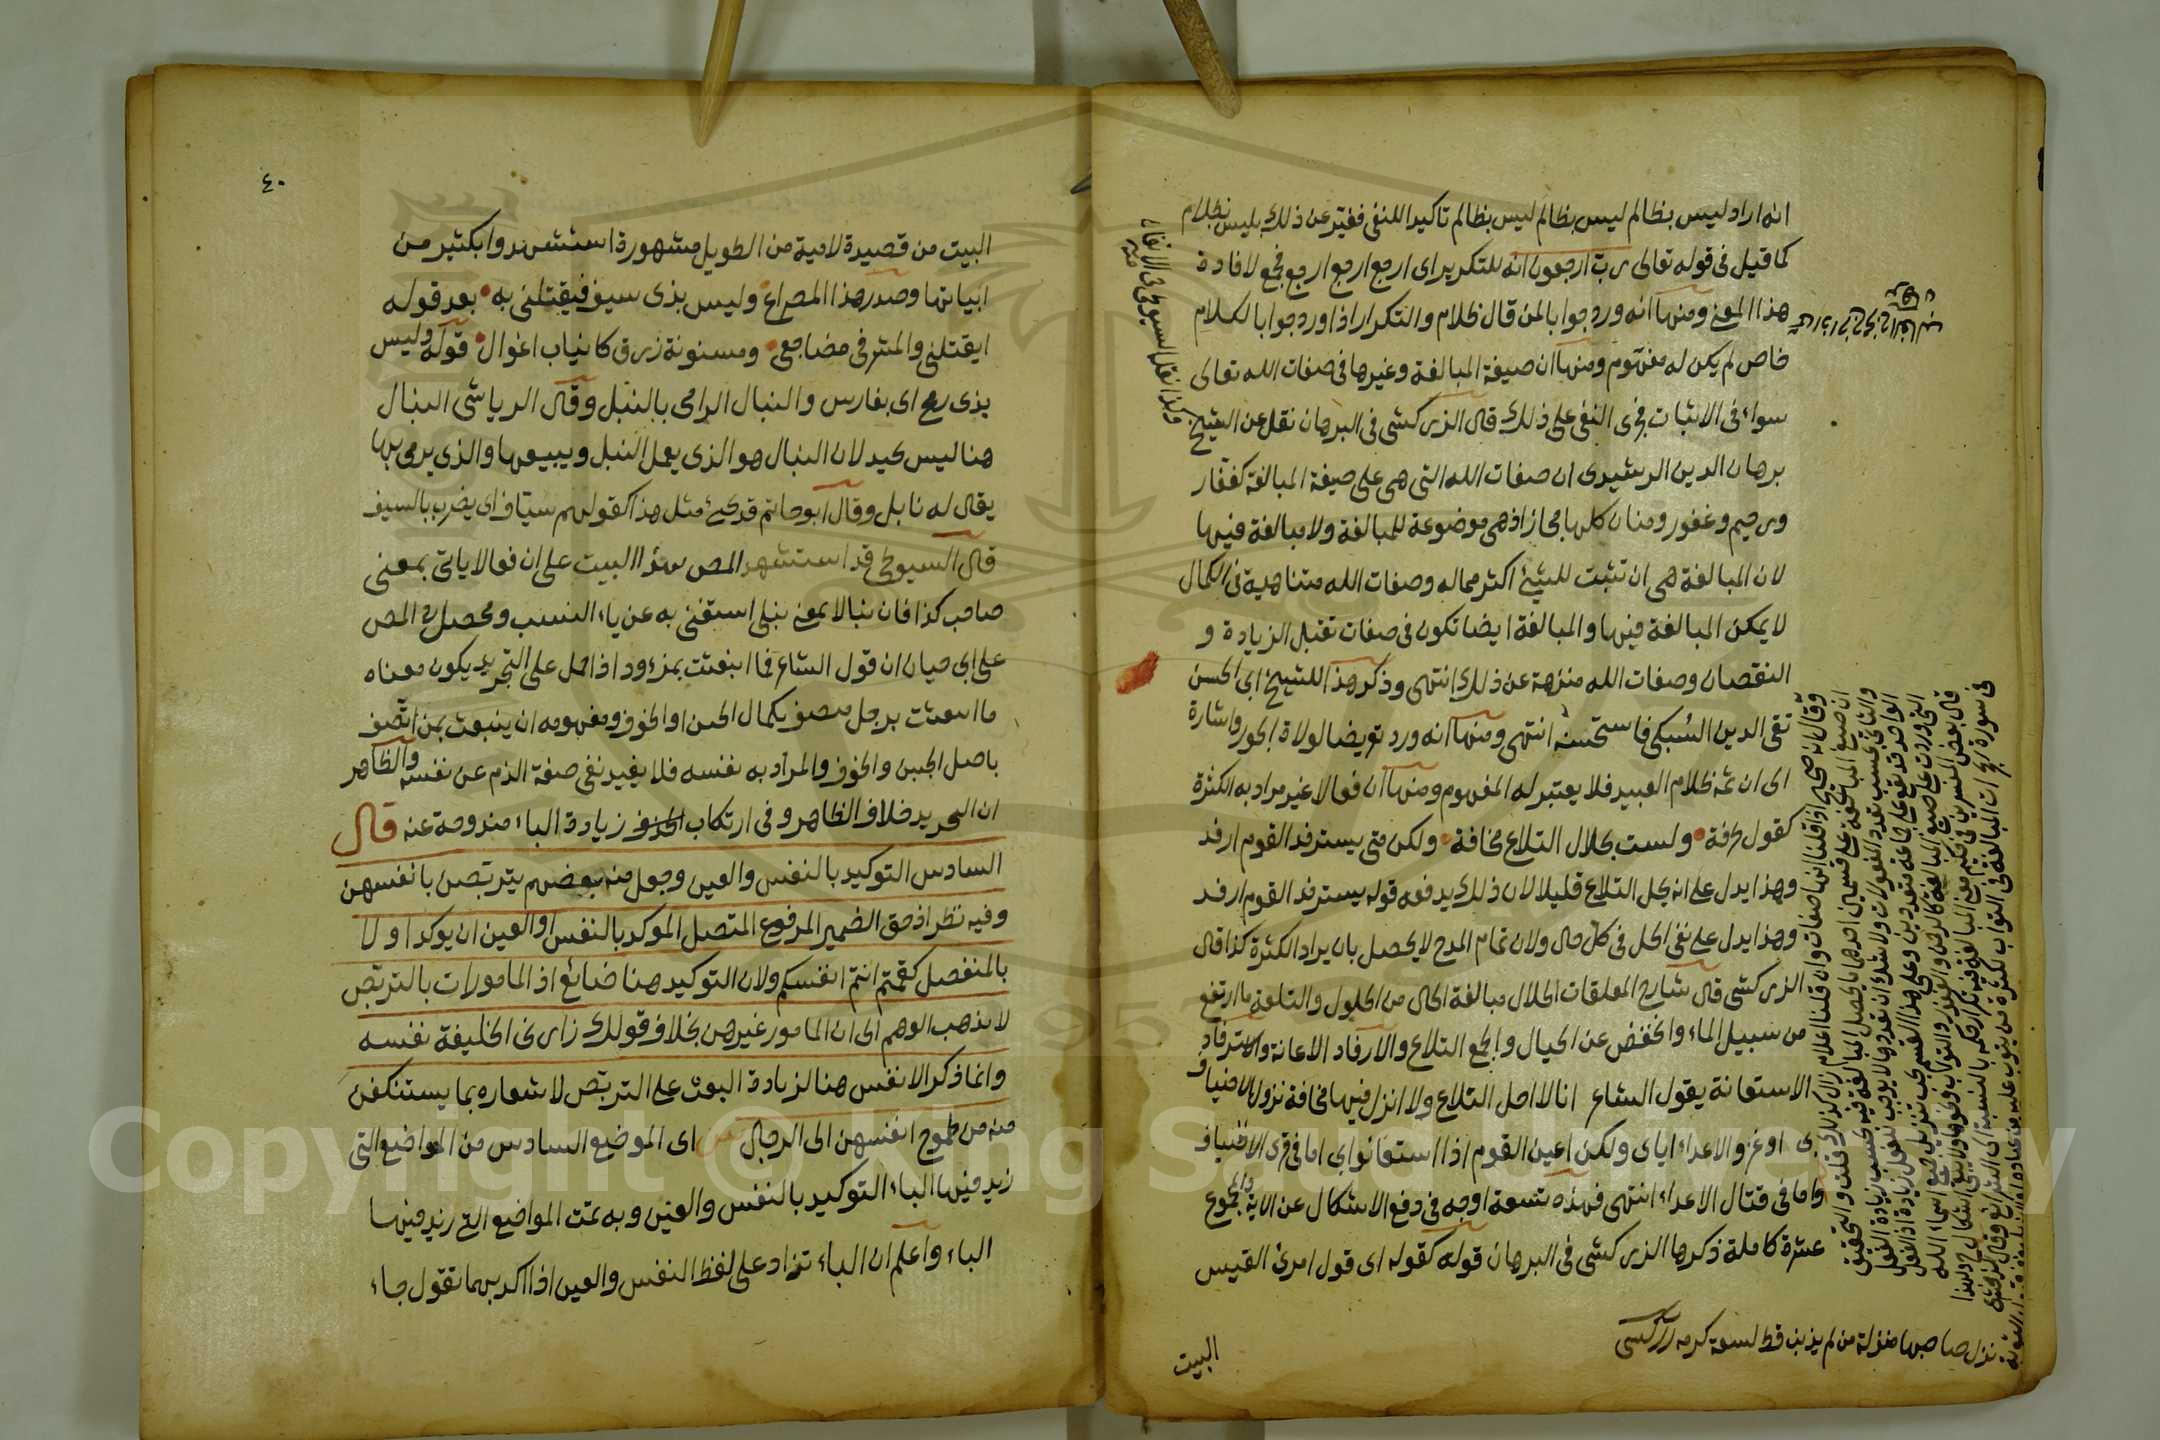 انه اراد ليس بظالم ليس بظالم ليس بظالم تاكيدا للنفى فعبر عن ذلك بليس بظلام
كما قيل فى قوله تعالى رب ارجعون انه للتكرير اى ارجع ارجع ارجع فجمع لافادة
هذا المعنى ومنها انه ورد جوابا لمن قال ظلام والتكرار اذا ورد جوابا لكلام
خاص لم يكن له مفهوم ومنها ان صيغة المبالغة وغيرها فى صفات الله تعالى
سواء فى الاثبات فجرى النفى على ذلك قال الزركشى فى البرهان نقل عن الشيخ
برهان الدين الرشيدى ان صفات الله التى هى على صيغة المبالغة كغفار
ورحيم وغفور ومنان كلها مجاز اذ هى موضوعة للمبالغة ولا مبالغة فيها
لان المبالغة هى ان تثبت للشئ اكثر مما له وصفات الله متناهية فى الكمال
لا يمكن المبالغة فيها والمبالغة ايضا تكون فى صفات تقبل الزيادة و
النقصان وصفات الله منزهة عن ذلك انتهى وذكر هذا للشيخ ابى الحسن
تقى الدين السبكى فاستحسنه انتهى ومنها انه ورد تعريضا لولاة الجور واشارة
الى ان ثمه ظلام العبيد فلا يعتبر له المفهوم ومنها ان فعالا غير مراد به الكثرة
كقول طرفة ولست بحلال التلاع مخافة ولكن متى يسترفد القوم ارفد
وهذا يدل على انه يحل التلاع قليلا لان ذلك يدفعه قوله يسترفد القوم ارفد
وهذا يدل على نفى الحل فى كل حال ولان تمام المدح لا يحصل بان يراد الكثرة كذا قال
الزركشى قال شارح المعلقات الحلال مبالغة الحال من الحلول والتلعة ما ارتفع
من سبيل الماء وانخفض عن الجبال والجمع التلاع والارفاد الاعانة والاسترفاد
الاستعانة يقول الشاعر انا لا احل التلاع ولا انزل فيها مخافة نزول الاضياف
بى او غزو الاعداء اياى ولكن اعين القوم اذا استعانوا بى اما فى قرى الاضياف
واما فى قتال الاعداء انتهى فهذه تسعة اوجه فى دفع الاشكال عن الاية والمجموع
عشرة كاملة ذكرها الزركشى فى البرهان قوله كقوله اى قول امرئ القيس
البيت
وكذا نقله السيوطى فى الاتقان
منه
وقال انه صحيح اذا قلنا انها صفات وان قلنا اعلام زال ذلك قلت والتحقيق
ان صيغ المبالغة على قسمين احدهما ما يحصل المبالغة فيه بحسب زيادة الفعل
والثانى بحسب تعدد المفعولات ولا شك ان تعددها لا يوجب للفعل زيادة اذ الفعل
الواحد قد يقع على جماعة متعددين وعلى هذا القسم يجب تنزيل جميع اسماء الله
نزل صاحبها منزلة من لم يذنب قط لسعة كرمه زركشى
٤٠
البيت من قصيدة لامية من الطويل مشهورة استشهدوا بكثير من
ابياتها وصدر هذا المصراع وليس بذى سيف فيقتلنى به بعد قوله
ايقتلنى والمشرفى مضاجعى ومسنونة زرق كانياب اغوال قوله وليس
بذى رمح اى بفارس والنبال الرامى بالنبل وقال الرياشى النبال
هنا ليس بجيد لان النبال هو الذى يعمل النبل ويبيعها والذى يرمى بها
يقال له نابل وقال ابو حاتم قد يجئ مثل هذا كقولهم سياف اى يضرب بالسيف
قال السيوطى قد استشهد المص بهذا البيت على ان فعالا ياتى بمعنى
صاحب كذا فان نبالا بمعنى نبلى استغنى به عن ياء النسب ومحصل رد المص
على ابى حيان ان قول الشاعر فما انبعثت بمزءود اذا حمل على التجريد يكون معناه
ما انبعثت برجل متصف بكمال الجبن او الخوف ومفهومه ان ينبعث بمن اتصف
باصل الجبن والخوف والمراد به نفسه فلا يفيد نفى صفة الذم عن نفسه والظاهر
ان التجريد خلاف الظاهر وفى ارتكاب الحذف زيادة الباء مندوحة عنه قال
السادس التوكيد بالنفس والعين وجعل منه بعضهم يتربصن بانفسهن
وفيه نظر اذ حق الضمير المرفوع المتصل الموكد بالنفس او العين ان يوكد اولا
بالمنفصل كقمتم انتم انفسكم ولان التوكيد هنا ضائع اذ المامورات بالتربص
لا يذهب الوهم الى ان المامور غيرهن بخلاف قولك زارنى الخليفة نفسه
وانما ذكر الانفس هنا لزيادة البعث على التربص لاشعاره بما يستنكفن
منه من طموح انفسهن الى الرجال اى الموضع السادس من المواضع التى
زيد فيها الباء التوكيد بالنفس والعين وبه تمت المواضع التى زيد فيها
الباء واعلم ان الباء تزاد على لفظ النفس والعين اذا اكد بهما تقول جاء
Copyright © King Saud University
1957